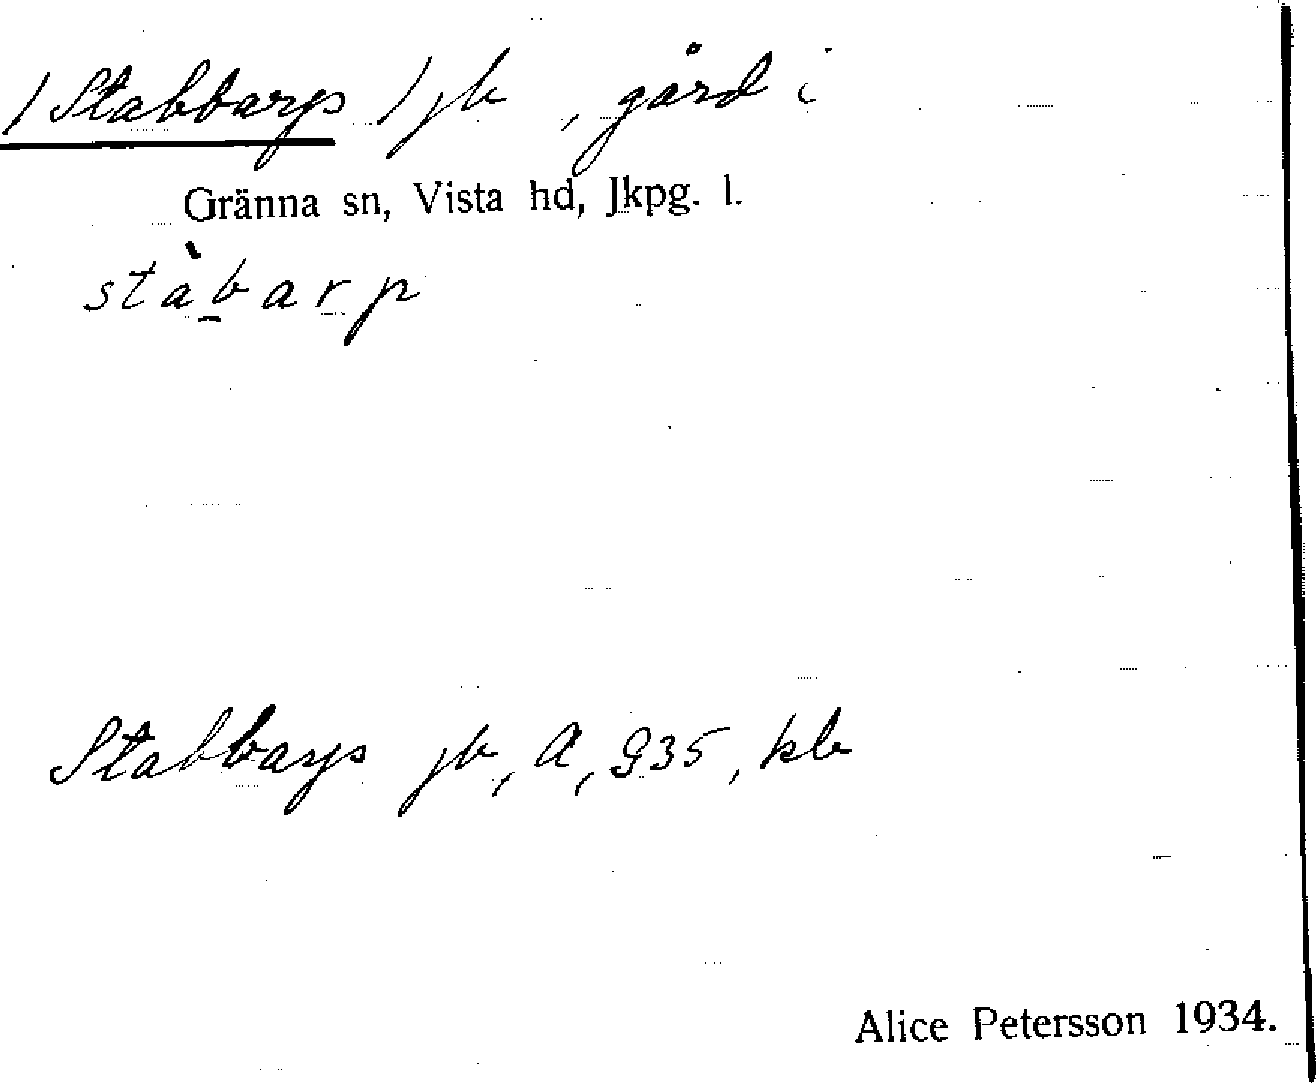 /Stabbarp/ jb, gård i
Gränna sn, Vista hd, Jkpg. l.
stàb̲arp
Stabbarp jb, A, G35, kb
Alice Petersson 1934.